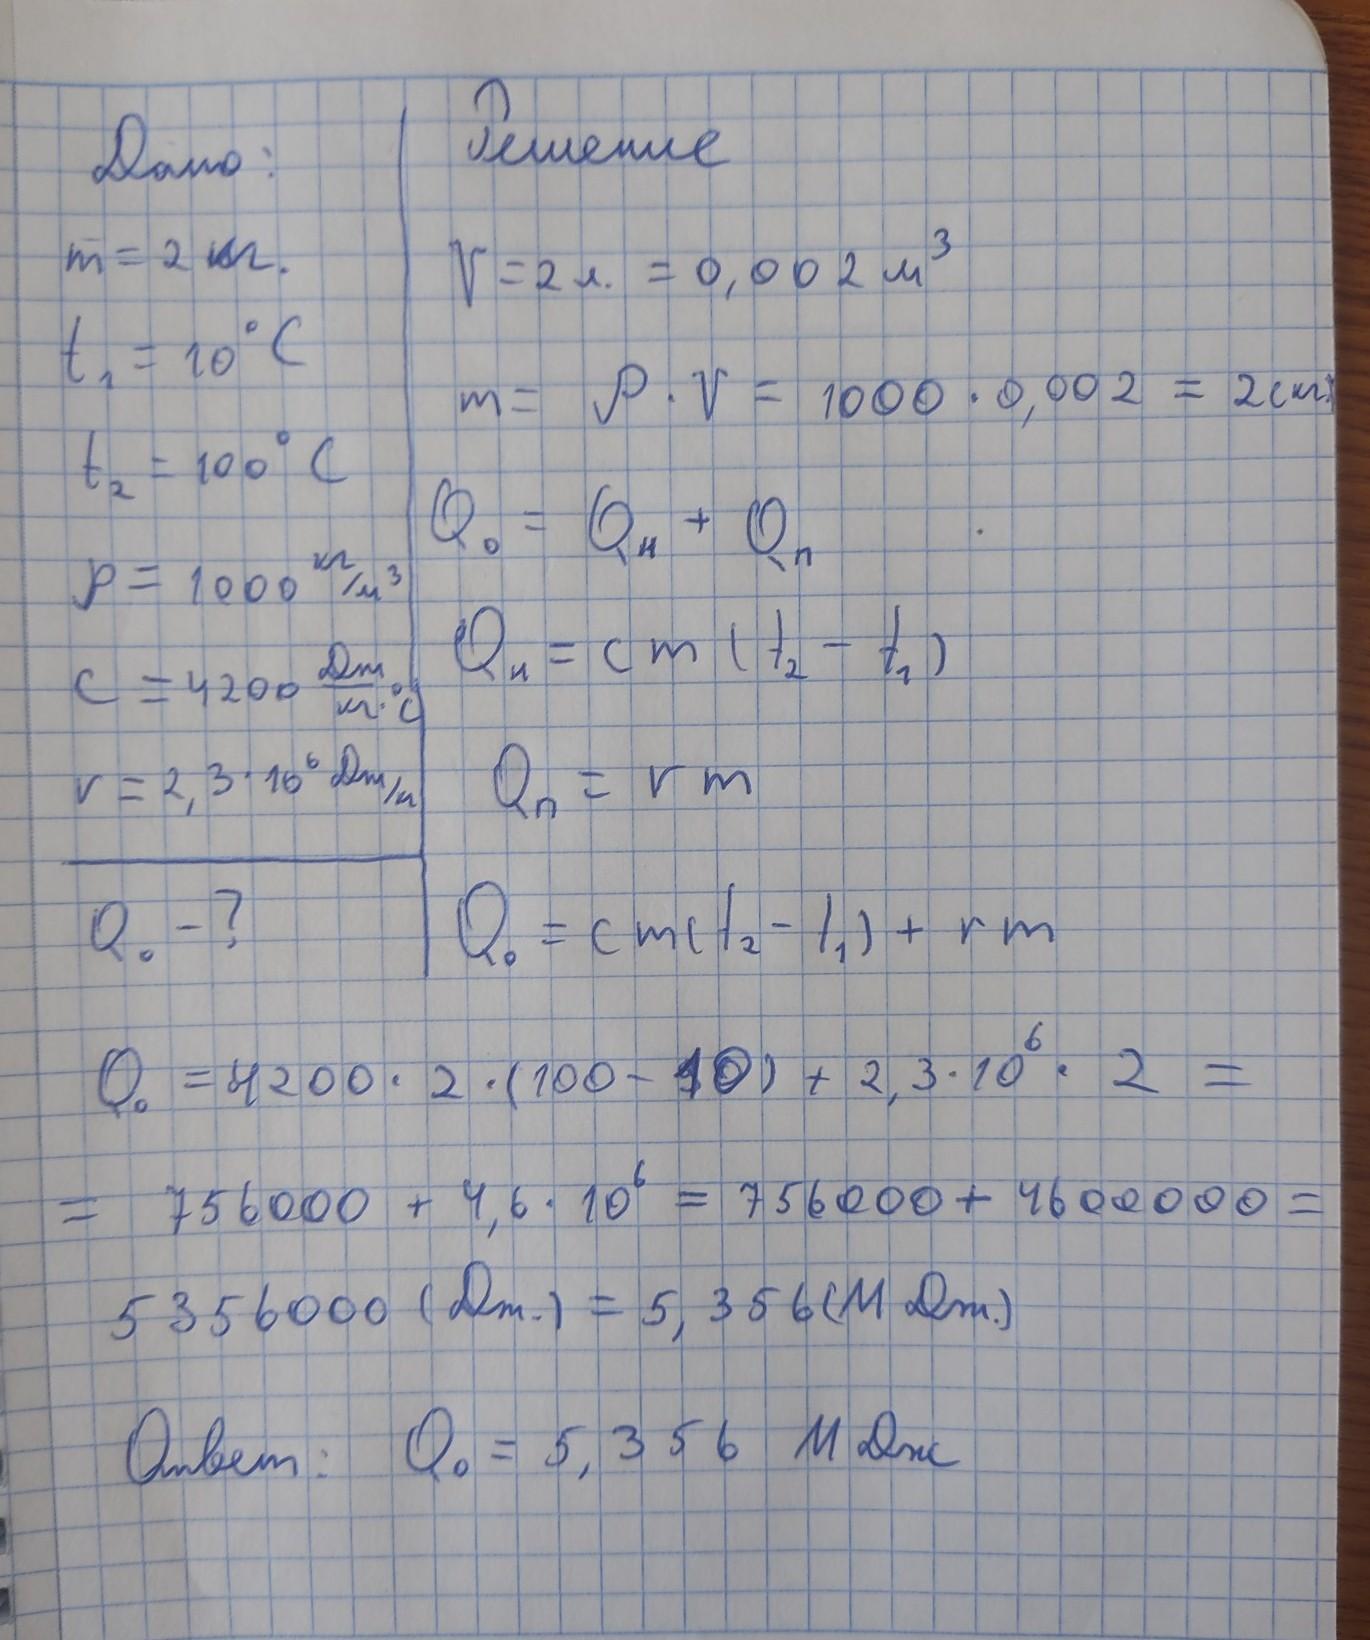 Дано:
m = 2 кг.
t₁ = 10°C
t₂ = 100°C
ρ = 1000 кг/м³
c = 4200 Дж/кг·°C
r = 2,3·10⁶ Дж/кг
Q₀ - ?
Решение
V = 2 л. = 0,002 м³
m = ρ · V = 1000 · 0,002 = 2(кг)
Q₀ = Qн + Qп
Qн = cm(t₂ - t₁)
Qп = rm
Q₀ = cm(t₂ - t₁) + rm
Q₀ = 4200 · 2 · (100 - 10) + 2,3·10⁶ · 2 =
= 756000 + 4,6·10⁶ = 756000 + 4600000 =
5356000 (Дж.) = 5,356(МДж.)
Ответ: Q₀ = 5,356 МДж